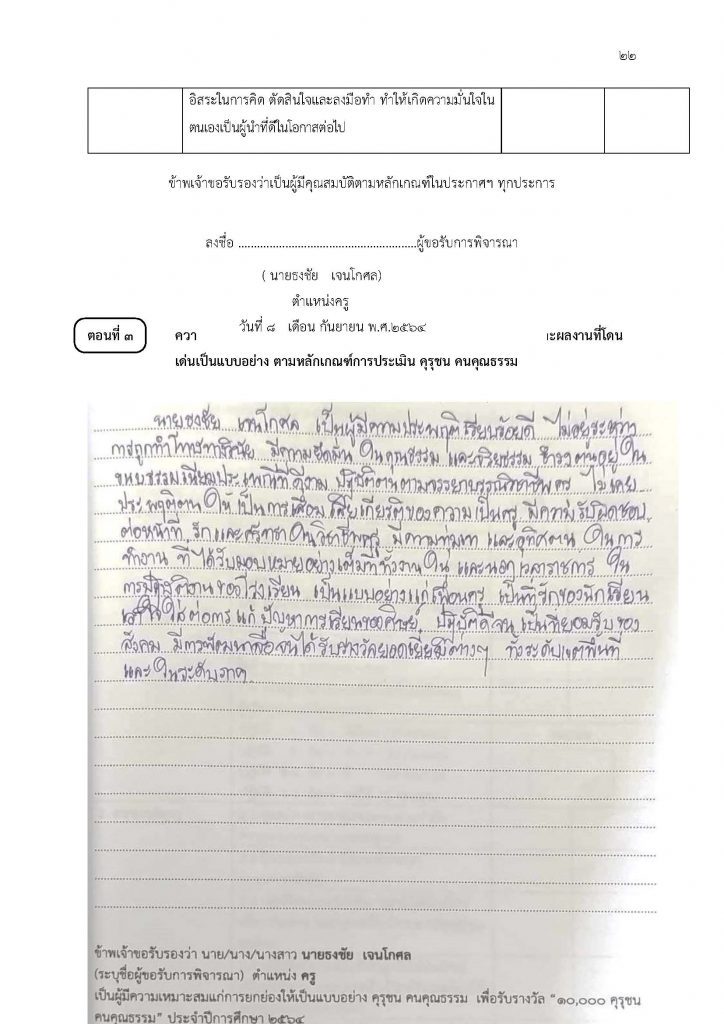 ๒๒
อิสระในการคิด ตัดสินใจและลงมือทำ ทำให้เกิดความมั่นใจใน
ตนเองเป็นผู้นำที่ดีในโอกาสต่อไป
ข้าพเจ้าขอรับรองว่าเป็นผู้มีคุณสมบัติตามหลักเกณฑ์ในประกาศฯ ทุกประการ
ลงชื่อ .........................................................ผู้ขอรับการพิจารณา
( นายธงชัย เจนโกศล)
ตำแหน่งครู
วันที่ ๘ เดือน กันยายน พ.ศ.๒๕๖๔
ตอนที่ ๓ ควา ะผลงานที่โดน
เด่นเป็นแบบอย่าง ตามหลักเกณฑ์การประเมิน คุรุชน คนคุณธรรม
นายธงชัย เจนโกศล เป็นผู้มีความประพฤติเรียบร้อยดี ไม่อยู่ระหว่าง
การถูกทำโทษทางวินัย มีความยึดมั่น ในคุณธรรม และจริยธรรม ธำรงตนอยู่ ใน
ขนบธรรมเนียมประเพณีที่ดีงาม ปฏิบัติตนตามจรรยาบรรณวิชาชีพครู ไม่เคย
ประพฤติตน ให้ เป็นการเสื่อมเสียเกียรติของความเป็นครู มีความรับผิดชอบ
ต่อหน้าที่ รัก และศรัทธาในวิชาชีพครู มีความทุ่มเท และอุทิศตน ในการ
ทำงาน ที่ได้รับมอบหมายอย่างเต็มที่ทั้งงานใน และนอกเวลาราชการ ใน
การปฏิบัติงานของโรงเรียน เป็นแบบอย่างแก่เพื่อนครู เป็นที่รักของนักเรียน
เอาใจใส่ต่อการ แก้ ปัญหาการเรียนของศิษย์ ปฏิบัติดีจน เป็นที่ยอมรับ ของ
สังคม มีการพัฒนาสื่อจนได้รับรางวัลยอดเยี่ยมต่างๆ ทั้งระดับเขตพื้นที่
และ ในระดับภาค
ข้าพเจ้าขอรับรองว่า นาย/นาง/นางสาว นายธงชัย เจนโกศล
(ระบุชื่อผู้ขอรับการพิจารณา) ตำแหน่ง ครู
เป็นผู้มีความเหมาะสมแก่การยกย่องให้เป็นแบบอย่าง คุรุชน คนคุณธรรม เพื่อรับรางวัล “๑๐,๐๐๐ คุรุชน
คนคุณธรรม” ประจำปีการศึกษา ๒๕๖๔